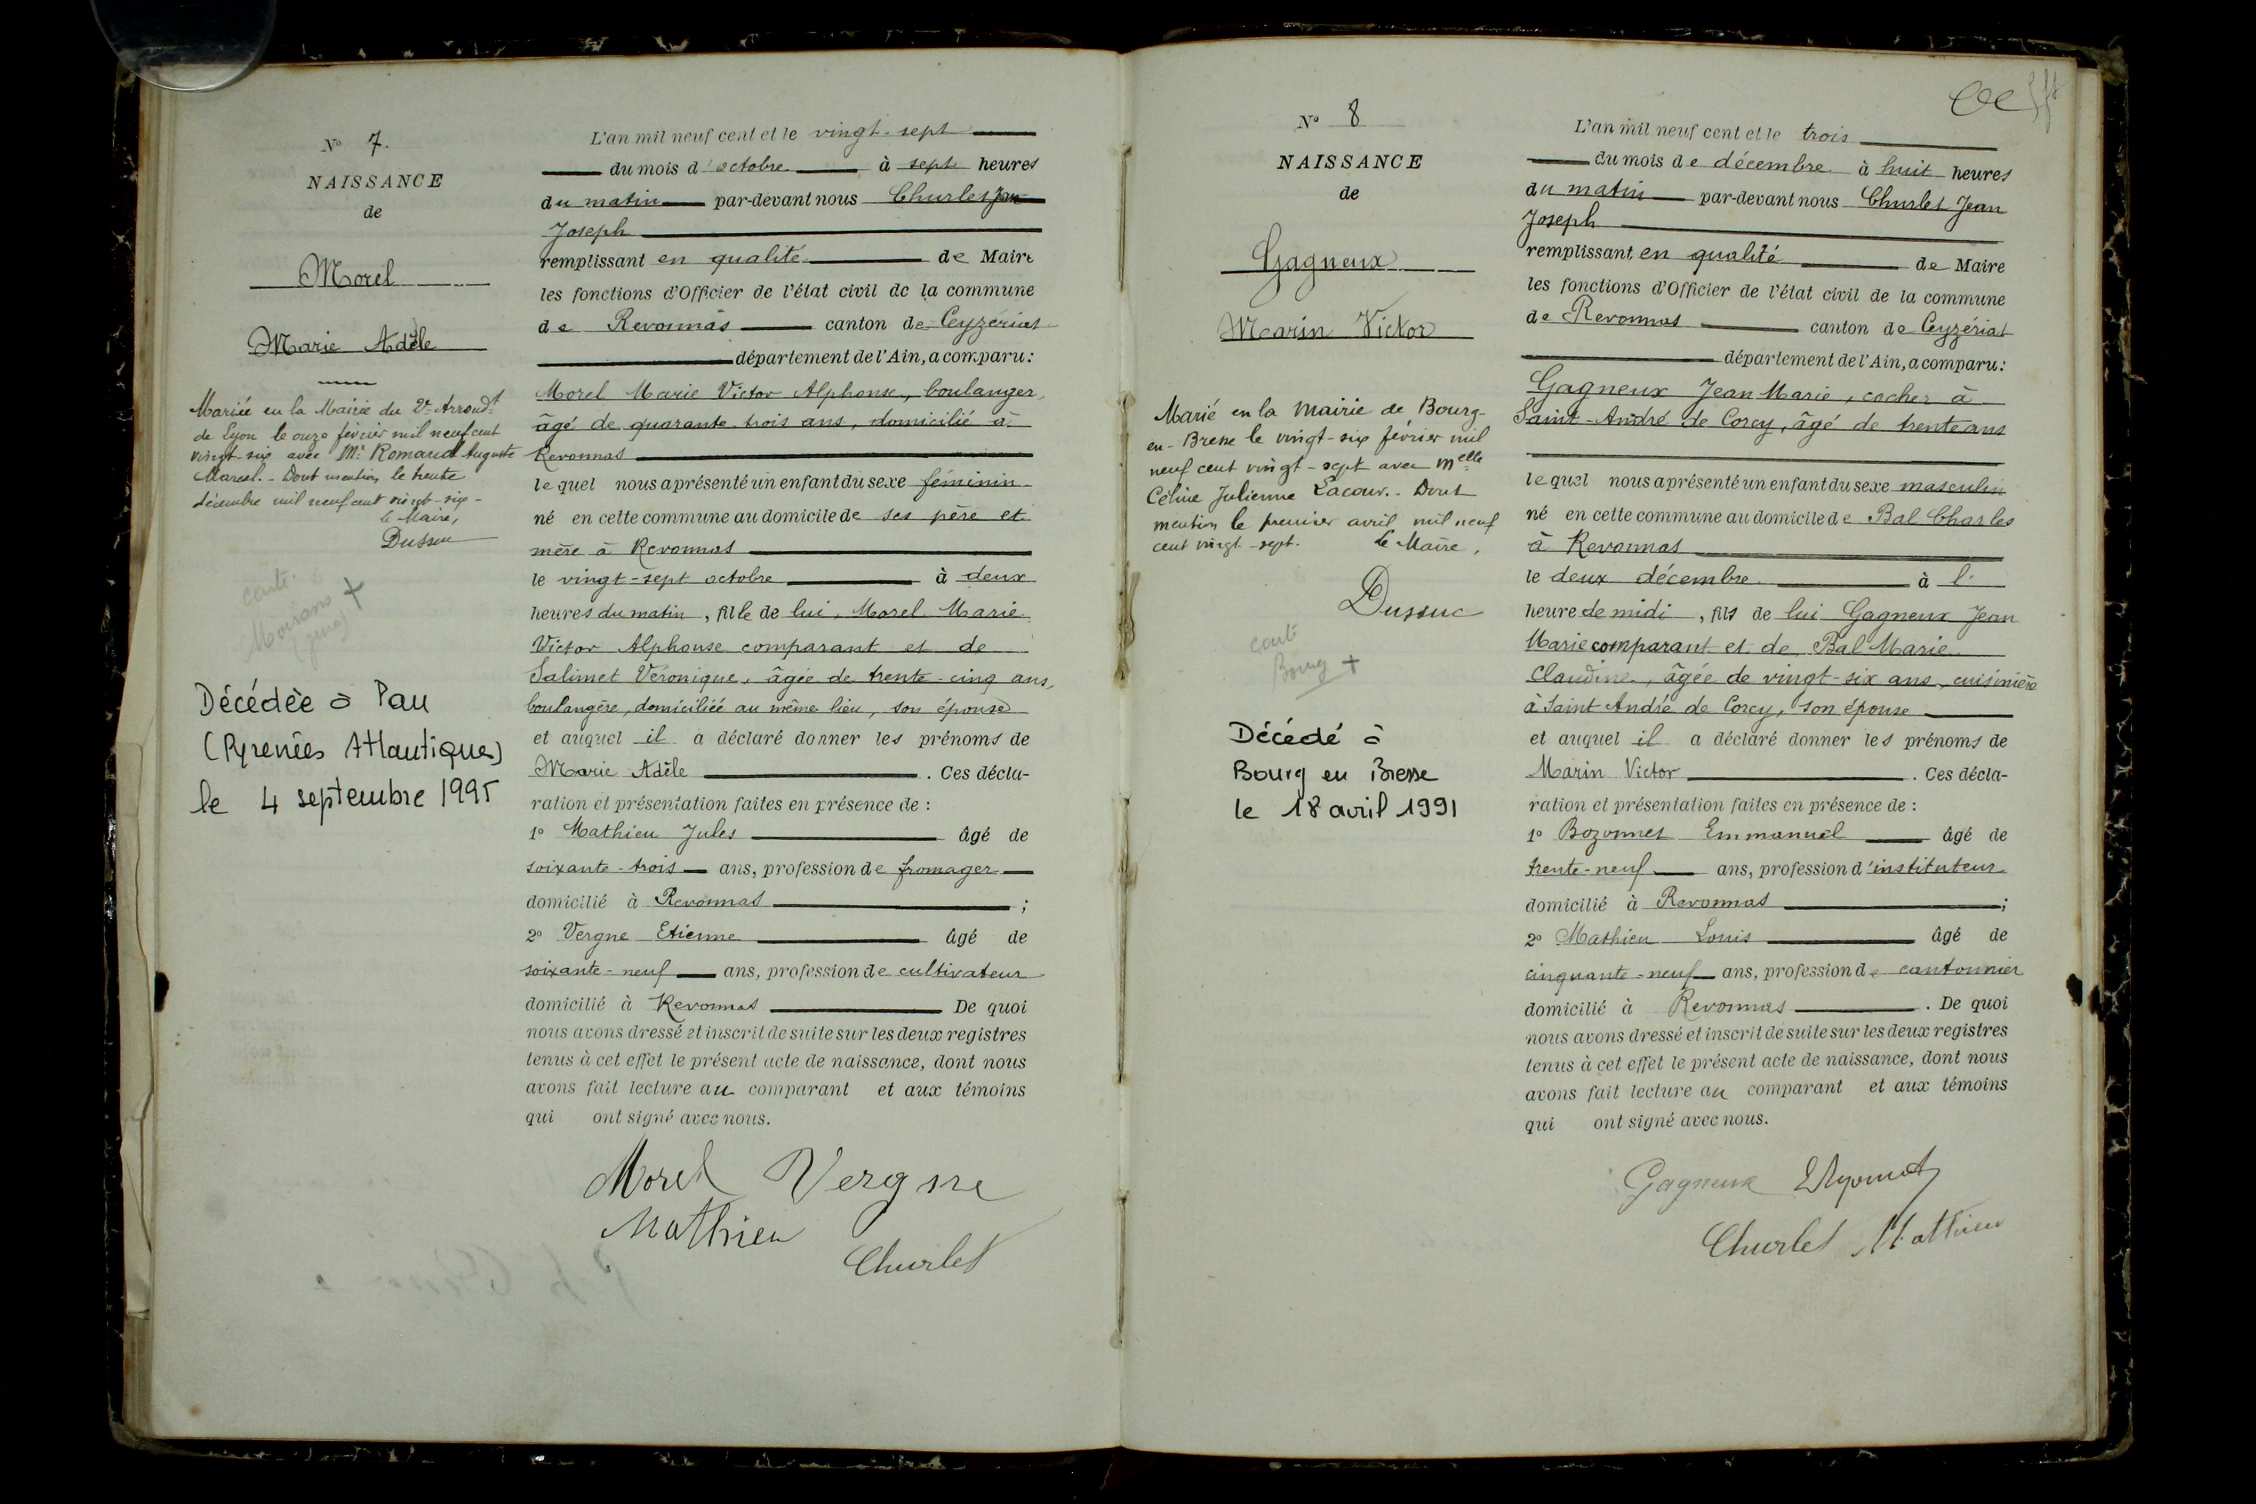 Nº 7.
NAISSANCE
de
Morel
Marie Adèle
Mariée en la Mairie du 2e Arrondt
de Lyon le onze février mil neuf cent
vingt-six avec Mr Romand Auguste
Marcel. - Dont mention, le trente
décembre mil neuf cent vingt-six -
le Maire,
Dussuc
Moirans
(Jura)
Décédée à Pau
(Pyrenées Atlantiques)
le 4 septembre 1995
L'an mil neuf cent et le vingt-sept
du mois d'octobre à sept heures
du matin par-devant nous Churlet Jean
Joseph
remplissant en qualité de Maire
les fonctions d'Officier de l'état civil de la commune
de Revonnas canton de Ceyzériat
département de l'Ain, a comparu:
Morel Marie Victor Alphonse, boulanger,
âgé de quarante-trois ans, domicilié à
Revonnas
lequel nous a présenté un enfant du sexe féminin
né en cette commune au domicile de ses père et
mère à Revonnas
le vingt-sept octobre à deux
heures du matin, fille de lui, Morel Marie
Victor Alphonse comparant et de
Salimet Véronique, âgée de trente-cinq ans,
boulangère, domiciliée au même lieu, son épouse
et auquel il a déclaré donner les prénoms de
Marie Adèle . Ces décla-
ration et présentation faites en présence de :
1º Mathieu Jules âgé de
soixante-trois ans, profession de fromager
domicilié à Revonnas ;
2º Vergne Etienne âgé de
soixante-neuf ans, profession de cultivateur
domicilié à Revonnas De quoi
nous avons dressé et inscrit de suite sur les deux registres
tenus à cet effet le présent acte de naissance, dont nous
avons fait lecture au comparant et aux témoins
qui ont signé avec nous.
Morel Vergne
Mathieu
Churlet
Nº 8
NAISSANCE
de
Gagneux
Marin Victor
Marié en la Mairie de Bourg-
en-Bresse le vingt-six février mil
neuf cent vingt-sept avec Melle
Céline Julienne Lacour. - Dont
mention le premier avril mil neuf
cent vingt-sept. Le Maire,
Dussuc
Bourg +
Décédé à
Bourg en Bresse
le 18 avril 1991
L'an mil neuf cent et le trois
du mois de décembre à huit heures
du matin par-devant nous Churlet Jean
Joseph
remplissant en qualité de Maire
les fonctions d'Officier de l'état civil de la commune
de Revonnas canton de Ceyzériat
département de l'Ain, a comparu:
Gagneux Jean Marie, cocher à
Saint-André de Corcy, âgé de trente ans
lequel nous a présenté un enfant du sexe masculin
né en cette commune au domicile de Bal Charles
à Revonnas
le deux décembre à l'
heure de midi, fils de lui Gagneux Jean
Marie comparant et de Bal Marie
Claudine, âgée de vingt-six ans, cuisinière
à Saint André de Corcy, son épouse
et auquel il a déclaré donner les prénoms de
Marin Victor . Ces décla-
ration et présentation faites en présence de :
1º Bozonnet Emmanuel âgé de
trente-neuf ans, profession d'instituteur
domicilié à Revonnas ;
2º Mathieu Louis âgé de
cinquante-neuf ans, profession de cantonnier
domicilié à Revonnas . De quoi
nous avons dressé et inscrit de suite sur les deux registres
tenus à cet effet le présent acte de naissance, dont nous
avons fait lecture au comparant et aux témoins
qui ont signé avec nous.
Gagneux
Churlet Mathieu